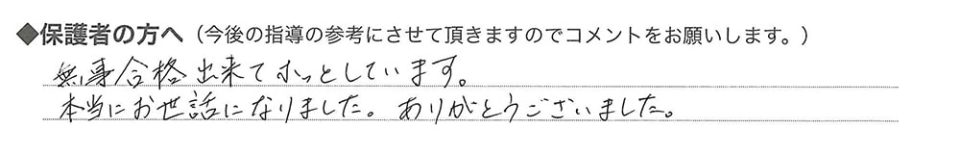 ◆保護者の方へ（今後の指導の参考にさせて頂きますのでコメントをお願いします。）
無事合格出来てホッとしています。
本当にお世話になりました。ありがとうございました。